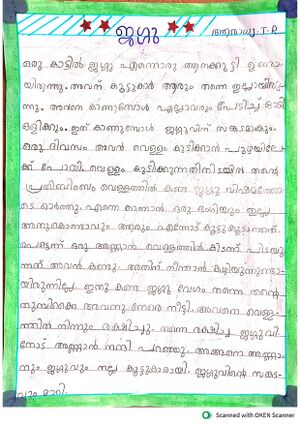 ജഗ്ഗു
ആരാധ്യ. T. R
ഒരു കാട്ടിൽ ജഗ്ഗു എന്നൊരു ആനക്കുട്ടി ഉണ്ടാ
യിരുന്നു. അവന് കൂട്ടുകാർ ആരും തന്നെ ഇല്ലായിരു
ന്നു. അവനെ കാണുമ്പോൾ എല്ലാവരും പേടിച്ച് ഓടി
ഒളിക്കും. ഇത് കാണുമ്പോൾ ജഗ്ഗുവിന് സങ്കടമാകും.
ഒരു ദിവസം അവൻ വെള്ളം കുടിക്കാൻ പുഴയിലേ
ക്ക് പോയി. വെള്ളം കുടിക്കുന്നതിനിടയിൽ അവൻ
പ്രതിബിംബം വെള്ളത്തിൽ കണ്ട ജഗ്ഗു വിഷമത്തോ
ടെ ഓർത്തു. എന്നെ കാണാൻ ഒരു ഭംഗിയും ഇല്ല
അതുകൊണ്ടാവും ആരും എന്നോട് കൂട്ടുകൂടാത്തത്.
പെട്ടെന്ന് ഒരു അണ്ണാൻ വെള്ളത്തിൽ കിടന്ന് പിടയു
ന്നത് അവൻ കണ്ടു. അതിന് നീന്താൻ കഴിയുന്നുണ്ടാ
യിരുന്നില്ല. ഇതു കണ്ട ജഗ്ഗു വേഗം തന്നെ തന്റെ
തുമ്പിക്കൈ അവനു നേരെ നീട്ടി. അവനെ വെള്ള
ത്തിൽ നിന്നും രക്ഷിച്ചു. തന്നെ രക്ഷിച്ച ജഗ്ഗുവി
നോട് അണ്ണാൻ നന്ദി പറഞ്ഞു. അങ്ങനെ അണ്ണാ
നും ജഗ്ഗുവും നല്ല കൂട്ടുകാരായി. ജഗ്ഗുവിന്റെ സങ്കട
വും മാറി.
Scanned with OKEN Scanner